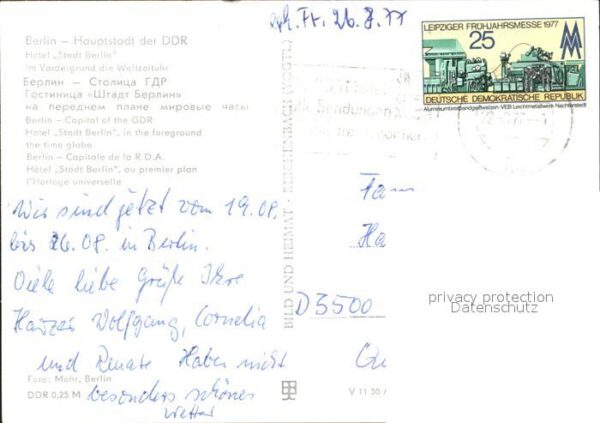 Berlin – Hauptstadt der DDR
Hotel „Stadt Berlin“
im Vordergrund die Weltzeituhr
Берлин – Столица ГДР
Гостиница «Штадт Берлин»
на переднем плане мировые часы
Berlin – Capital of the GDR
Hotel „Stadt Berlin“, in the foreground
the time globe
Berlin – Capitale de la R.D.A.
Hôtel „Stadt Berlin“, au premier plan
l'Horloge universelle
Wir sind jetzt vom 19.08.
bis 26.08. in Berlin.
Viele liebe Grüße Ihre
Wolfgang, Cornelia
und Renate Haben nicht
besonders schönes
Wetter
Foto: Mohr, Berlin
DDR 0,25 M
BILD UND HEIMAT · REICHENBACH (VOGTL)
V 11 50
26.8.77
LEIPZIGER FRÜHJAHRSMESSE 1977
25
DEUTSCHE DEMOKRATISCHE REPUBLIK
Aluminiumbreitbandgießwalzen VEB Leichtmetallwerk Nachterstedt
Sendungen
Fam
Ha
D3500
privacy protection
Datenschutz